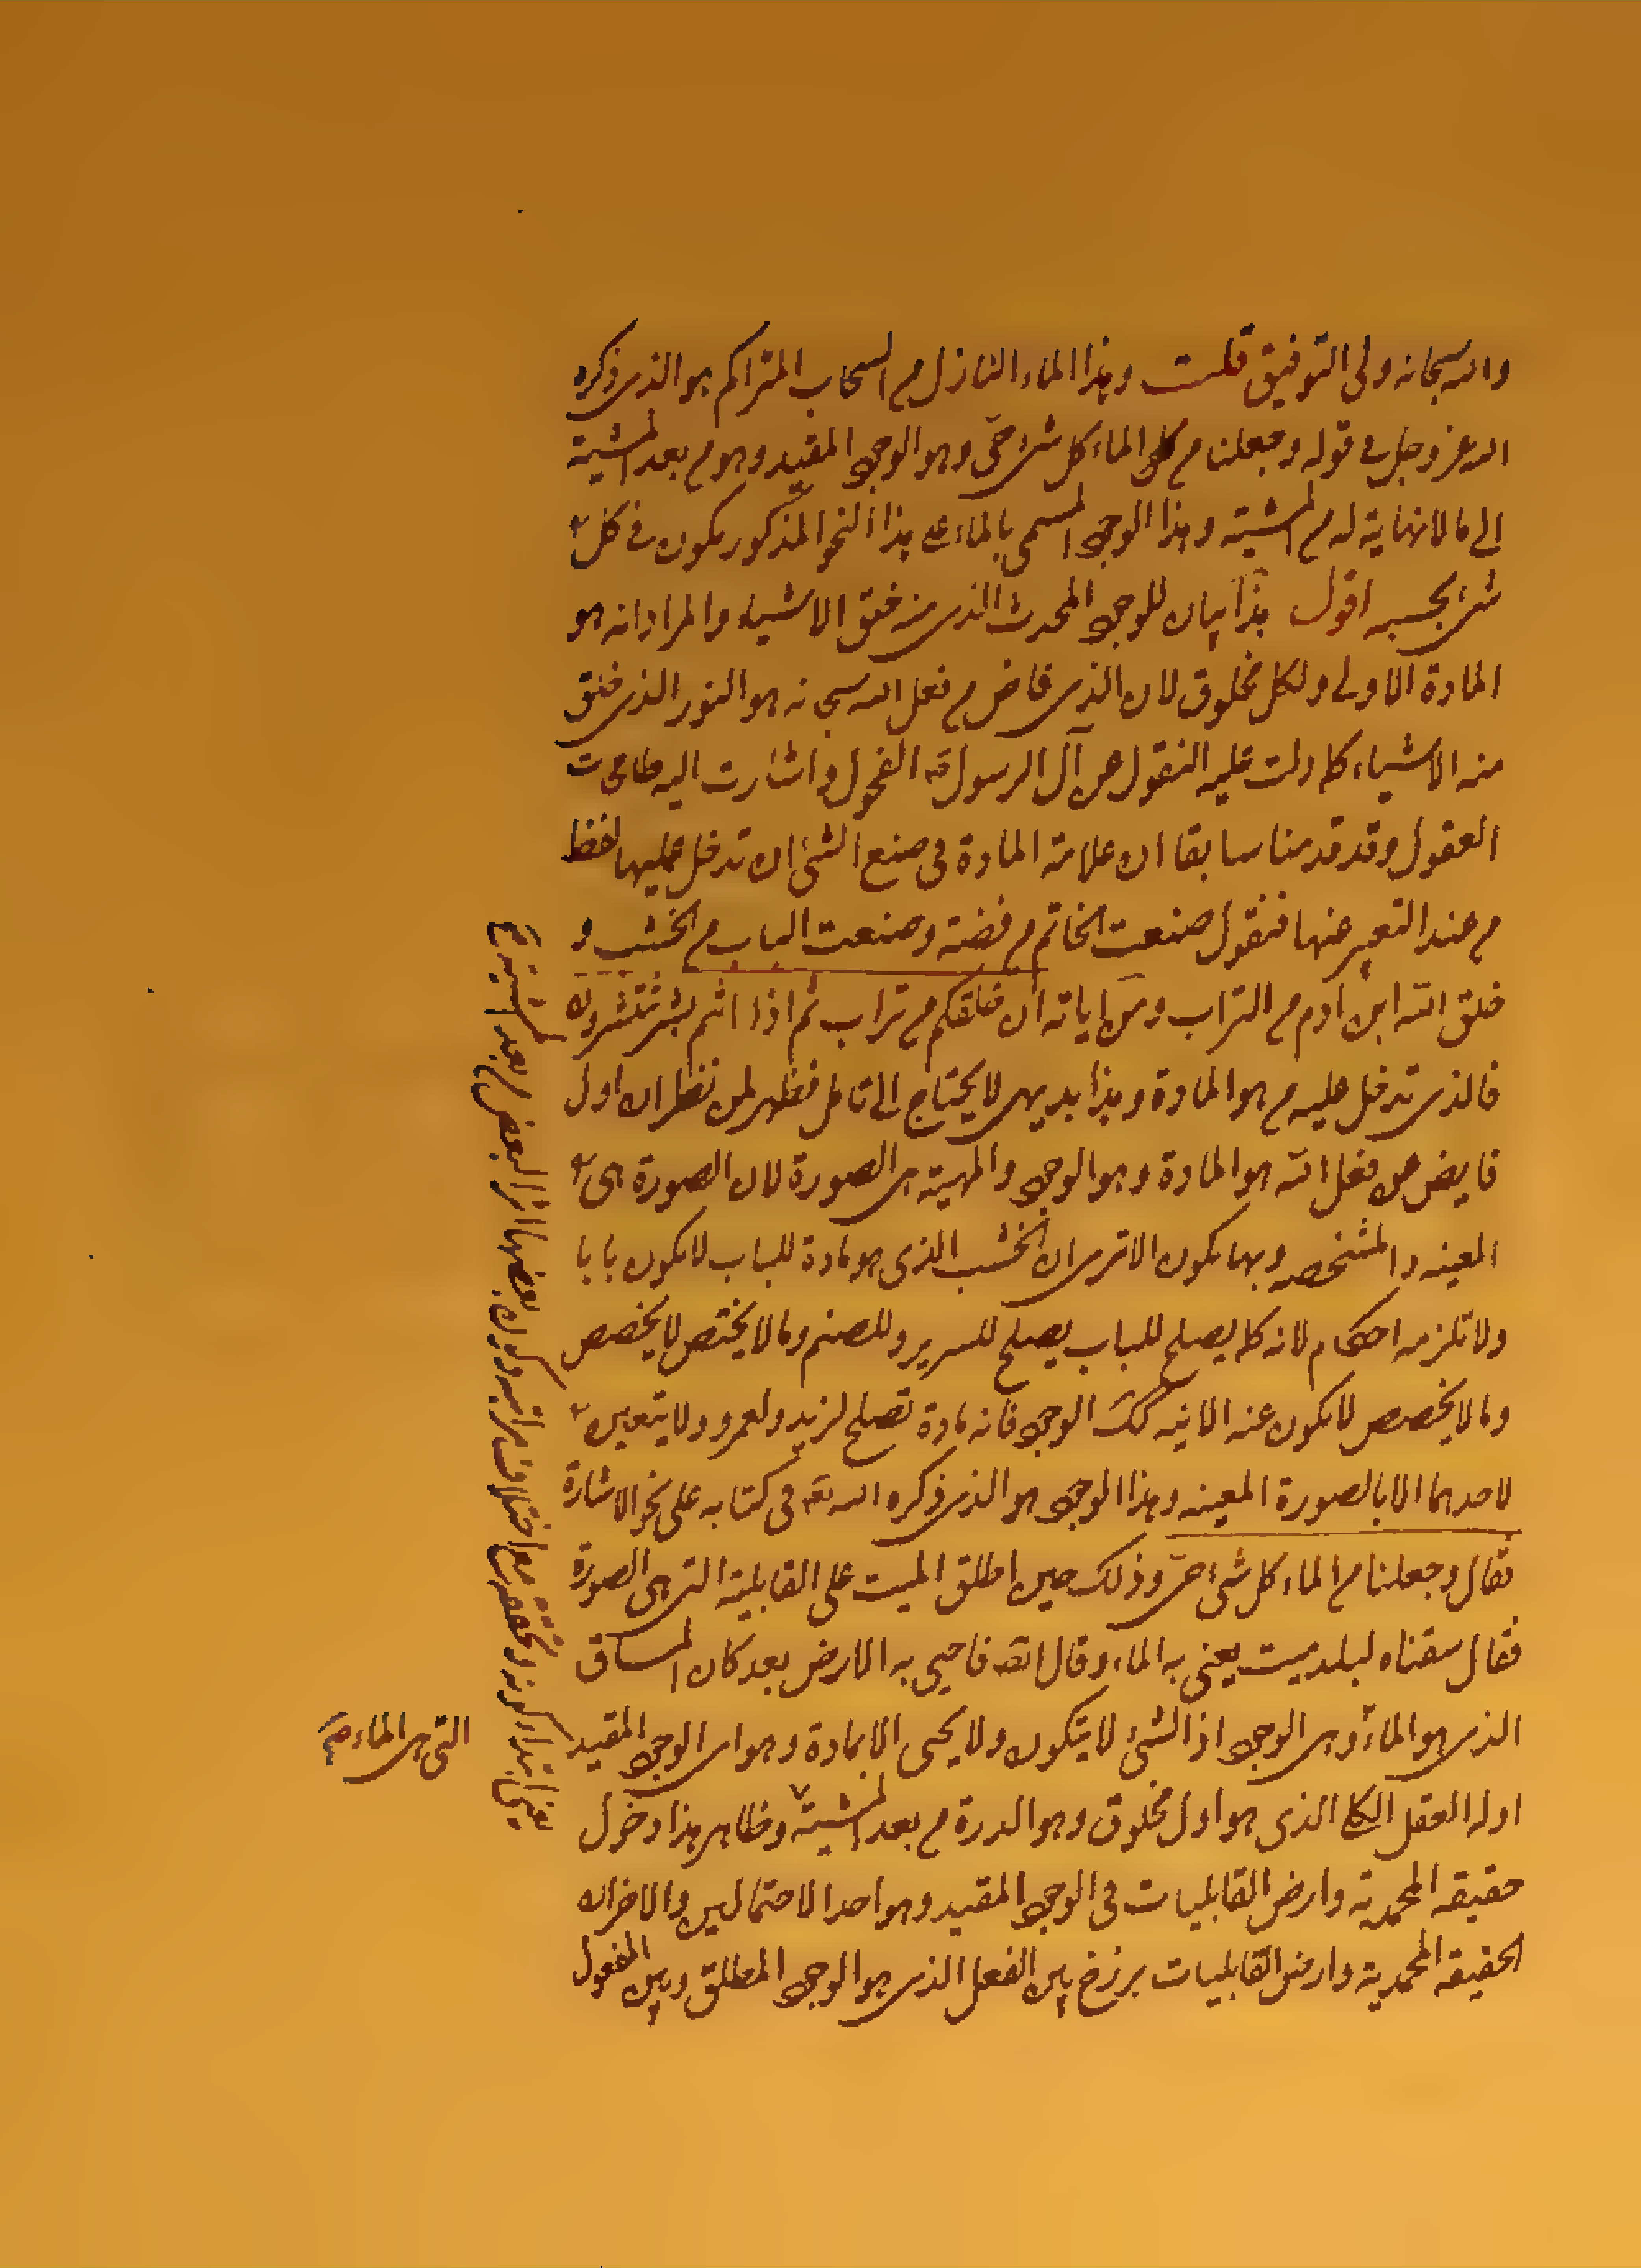 والله سبحانه ولى التوفيق قلت وهذا الماء النازل من السحاب المتراكم هو الذى ذكره
الله عز وجل فى قوله وجعلنا من الماء كل شئ حى وهو الوجود المقيد وهو من بعد المشية
الى ما لا نهاية له من المشية وهذا الوجود المسمى بالماء على هذا النحو المذكور يكون فى كل
شئ بحسبه اقول هذا بيان للوجود المحدث الذى منه خلق الاشياء والمراد انه هو
المادة الاولى ولكل مخلوق لان الذى فاض من فعل الله سبحانه هو النور الذى خلق
منه الاشياء كما دلت عليه النقول عن آل الرسول الفحول واشارت اليه طامحات
العقول وقد قدمنا سابقا ان علامة المادة فى صنع الشئ ان تدخل عليها لفظ
من عند التعبير عنها فنقول صنعت الخاتم من فضة وصنعت الباب من الخشب و
خلق الله ابن ادم من التراب ومن اياته ان خلقكم من تراب ثم اذا انتم بشر تنتشرون
فالذى تدخل عليه من هو المادة وهذا بديهى لا يحتاج الى تامل فظهر لمن نظر ان اول
فايض من فعل الله هو المادة وهو الوجود والمهية هى الصورة لان الصورة هى
المعينه والمشخصه وبها يكون الا ترى ان الخشب الذى هو مادة للباب لا يكون بابا
ولا تلزمه احكام لانه كما يصلح للباب يصلح للسرير وللصنم وما لا يختص لا يخصص
وما لا يخصص لا يكون عنه الانيه كك الوجود فانه مادة تصلح لزيد ولعمرو ولا يتعين
لاحدهما الا بالصورة المعينه وهذا الوجود هو الذى ذكره الله تعه فى كتابه على نحو الاشارة
فقال وجعلنا من الماء كل شئ حى وذلك حين اطلق الميت على القابلية التى هى الصورة
فقال سقناه لبلد ميت يعنى به الماء وقال تعه فاحيى به الارض بعد كان المساق
الذى هو الماء وهى الوجود اذ الشئ لا يتكون ولا يحيى الا بمادة وهو اى الوجود المقيد
التى هى الماء صح
اوله العقل الكلى الذى هو اول مخلوق وهو الدرة من بعد المشية وظاهر هذا دخول
حقيقه المحمدية وارض القابليات فى الوجود المقيد وهو احد الاحتمالين والاخر ان
الحقيقه المحمدية وارض القابليات برزخ بين الفعل الذى هو الوجود المطلق وبين المفعول